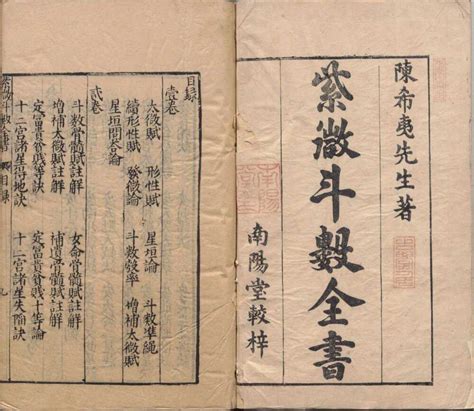 陳希夷先生著
紫微斗數全書
南陽堂較梓
目錄
壹卷
太微賦 形性賦 星垣論 斗數準繩
續形性賦 發微論 斗數發率 增補太微賦
星垣問荅論
貳卷
斗數骨髓賦註解 女命骨髓賦註解
增補太微賦註解 補遺骨髓賦註解
定富貴貧賤等訣 定富貴貧賤十等論
十二宮諸星得地訣 十二宮諸星失陷訣
目錄